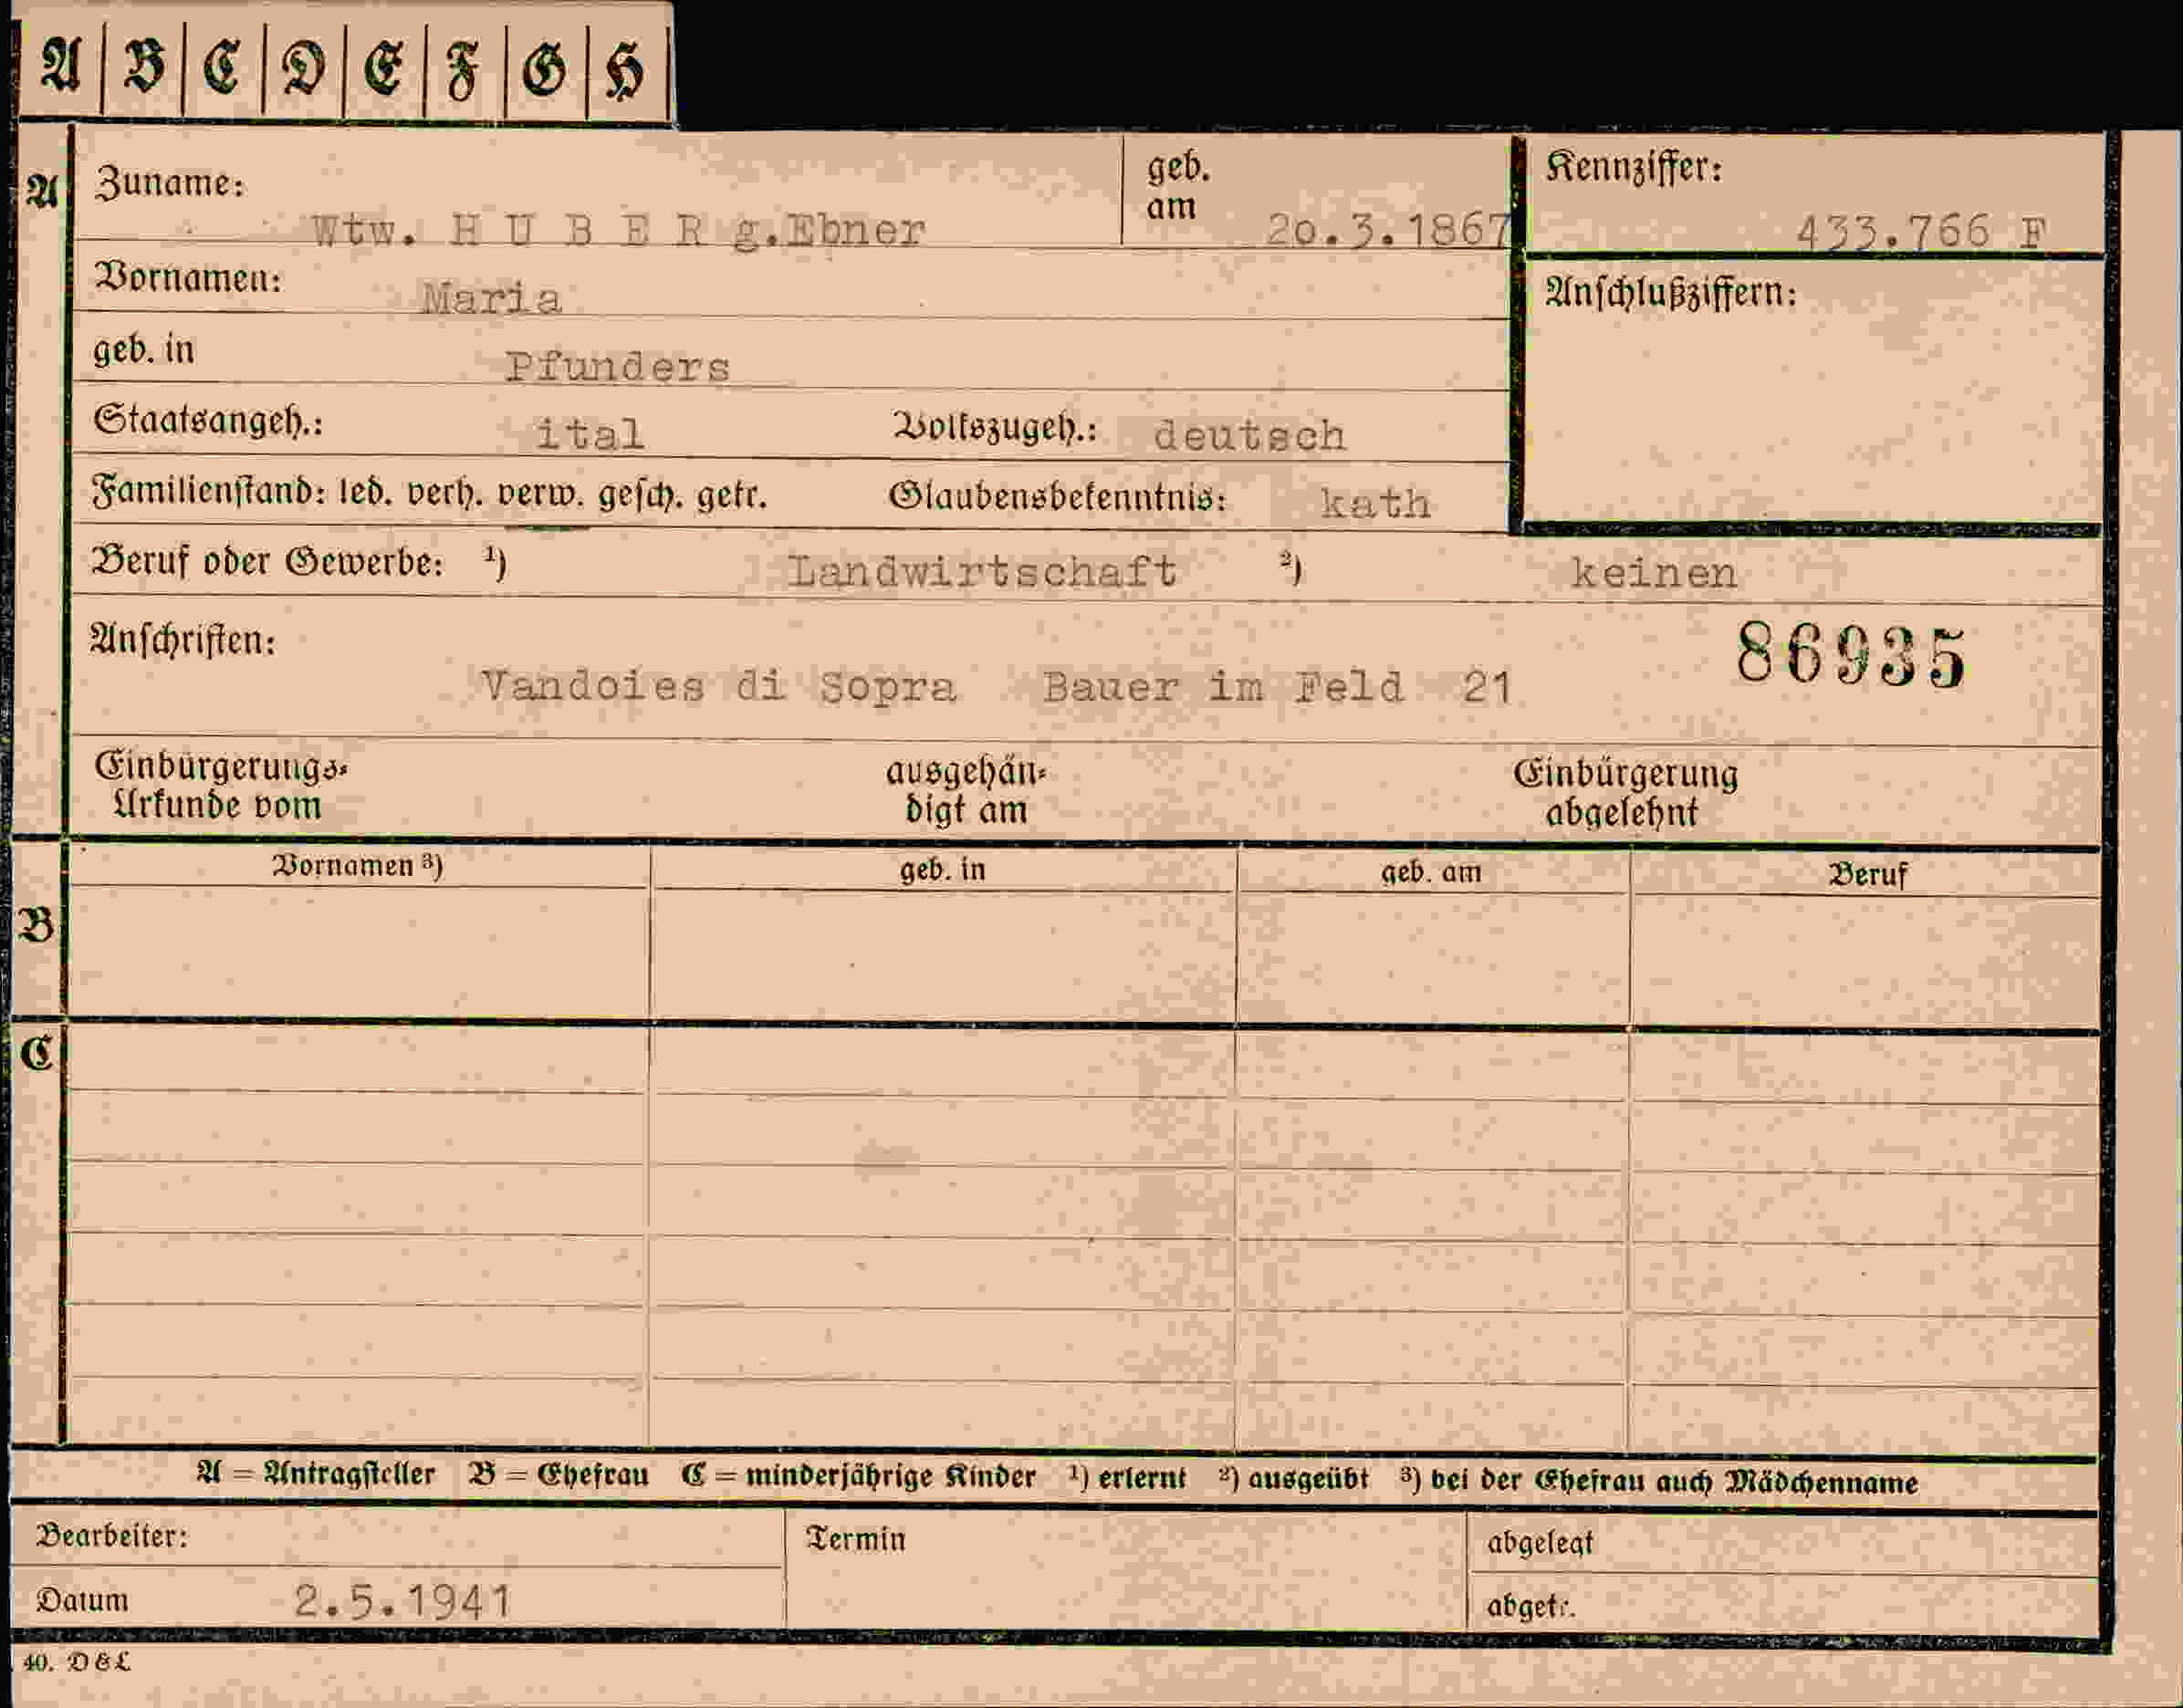 A B C D E F G H
A Zuname: Wtw. H U B E R g.Ebner geb. am 2o.3.1867 Kennziffer: 433.766 F
Vornamen: Maria Anschlußziffern:
geb. in Pfunders
Staatsangeh.: ital Volkszugeh.: deutsch
Familienstand: led. verh. verw. gesch. getr. Glaubensbekenntnis: kath
Beruf oder Gewerbe: ¹) Landwirtschaft ²) keinen
Anschriften: 86935
Vandoies di Sopra Bauer im Feld 21
Einbürgerungs- ausgehän- Einbürgerung
Urkunde vom digt am abgelehnt
Vornamen ³) geb. in geb. am Beruf
B
C
A = Antragsteller B = Ehefrau C = minderjährige Kinder ¹) erlernt ²) ausgeübt ³) bei der Ehefrau auch Mädchenname
Bearbeiter: Termin abgelegt
Datum 2.5.1941 abgetr.
40. D & L